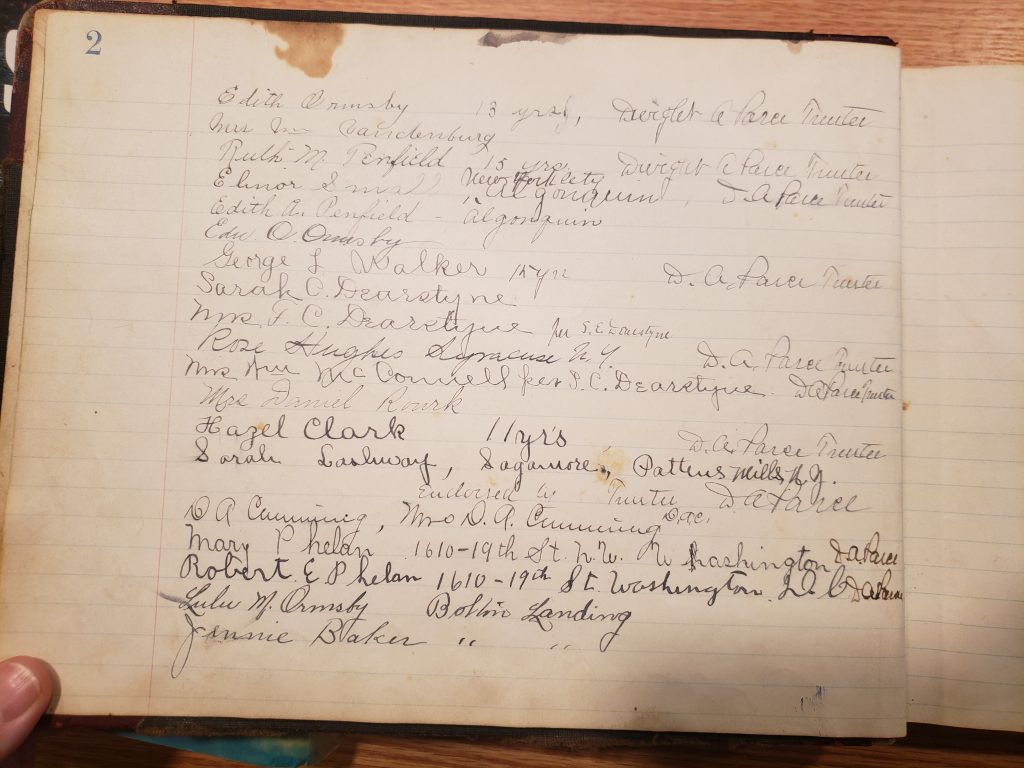 2
Edith Ormsby 13 yrs, Dwight A Parce Trustee
Mrs Wm Vandenburg
Ruth M. Penfield 15 yrs Dwight A Parce Trustee
New York City
Elinor Small "Algonquin", D. A Parce Trustee
Edith A. Penfield - Algonquin
Edw. O Ormsby
George L Walker 15 yrs D. A. Parce Trustee
Sarah C. Dearstyne
Mrs F. C. Dearstyne per S. C. Dearstyne
Rose Hughes Syracuse N.Y. D. A. Parce Trustee
Mrs Wm McConnell per S. C. Dearstyne. D A Parce Trustee
Mrs Daniel Rourk
Hazel Clark 11 yrs D. A. Parce Trustee
Sarah Lashway, Sagamore, Pattens Mills N.Y.
Endorsed by Trustee D A Parce
D A Cumming, Mrs D. A. Cumming
Mary Phelan 1610-19th St. N.W. Washington D. A. Parce
Robert E Phelan 1610-19th St. Washington. D. C D A Parce
Lulu M. Ormsby Bolton Landing
Jennie Baker " "